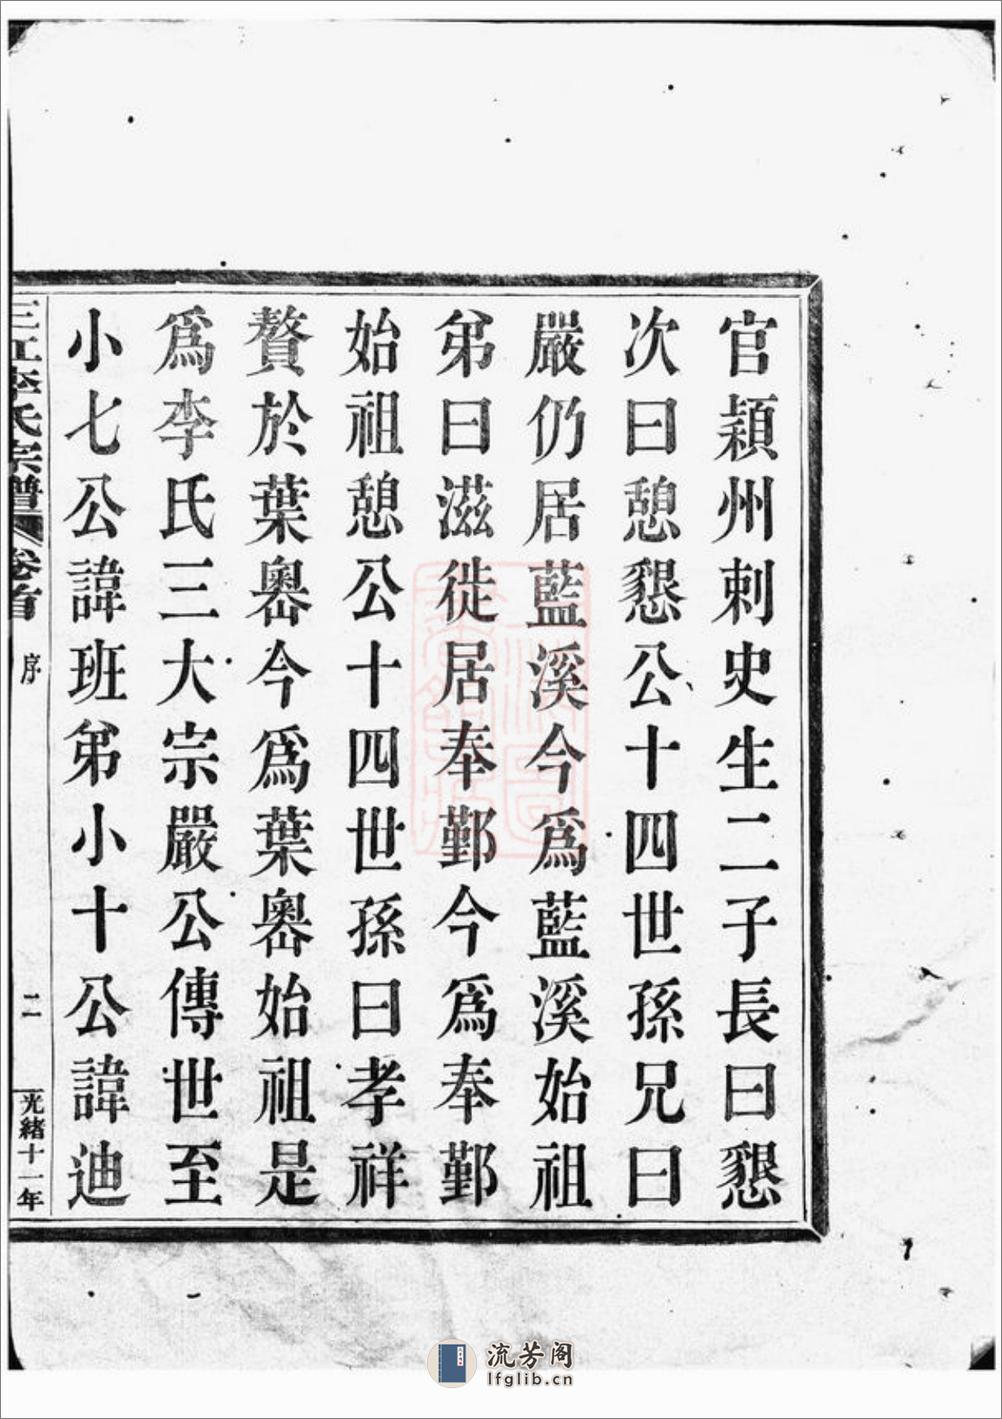 官潁州刺史生二子長曰懇
次曰憩懇公十四世孫兄曰
嚴仍居藍溪今爲藍溪始祖
弟曰滋徙居奉鄞今爲奉鄞
始祖憩公十四世孫曰孝祥
贅於葉嶴今爲葉嶴始祖是
爲李氏三大宗嚴公傳世至
小七公諱班弟小十公諱迪
三江李氏宗譜 卷首 序 二 光緒十一年
流芳阁
lfglib.cn